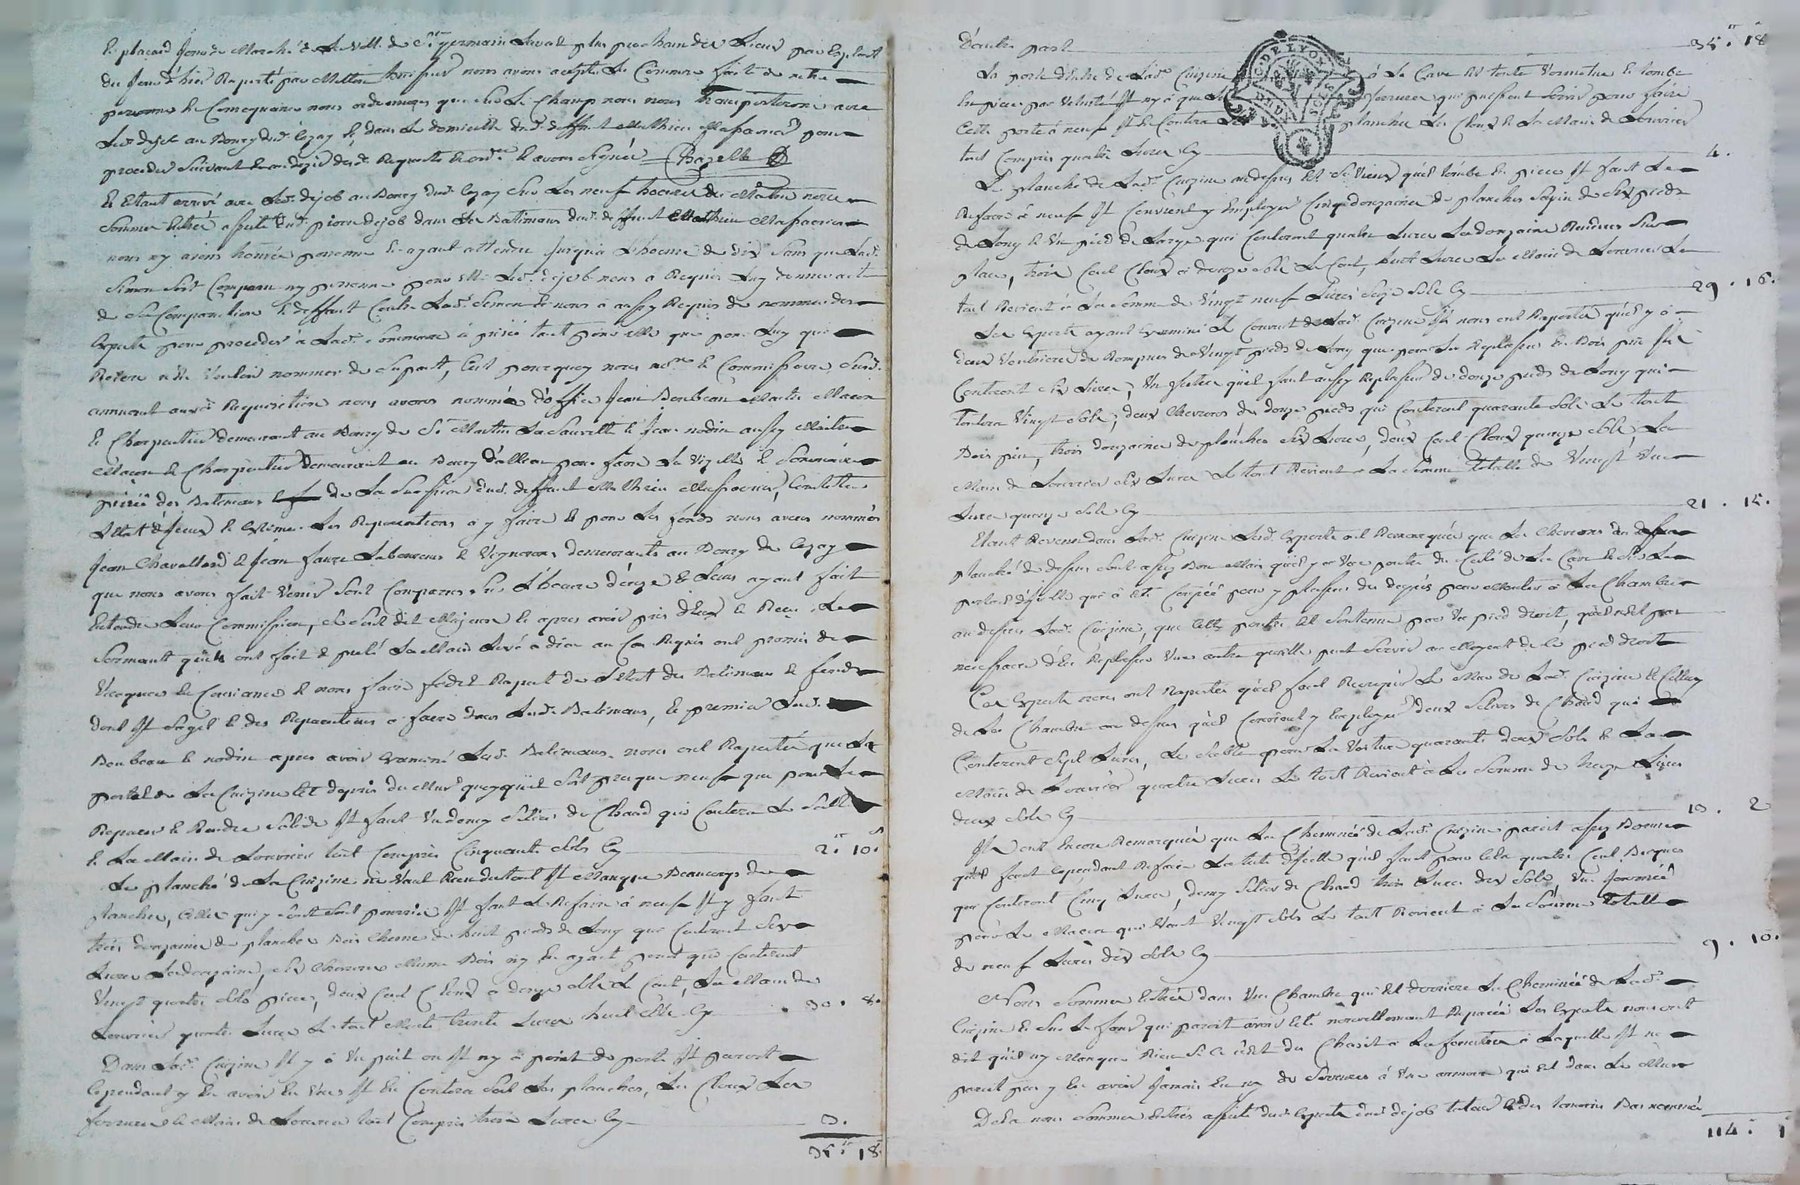 le placard Jour de Marché de la Ville de St germain Laval plus prochain des Lieux par Exploit
du Jour d'hier Raporté par nous avons accepté la Commission faite de notre
personne En Consequence nous ordonnons que sur le Champ nous nous transporterons avec
Led. dejob au Bourg dud. cezay Et dans le domicille dud. deffunt Mathieu pour
proceder Suivant lad. Requete Et avons Signé
Et Etant arrivé avec led. dejob au Bourg dud. cezay Sur les neuf heures du Matin nous
Sommes Entré assisté dud. pierre dejob dans les Batimens dud. deffunt Mathieu
nous ny avons trouvé personne Et ayant attendu Jusqu'à L'heure de dix Sans que Lad.
Simon Soit Comparu ny personne pour Elle Led. dejob nous a Requis Luy donner acte
de Sa Comparution Et deffaut Contre Lad. Simon Et nous a aussy Requis de nommer des
Experts pour proceder a Lad. Sommaire à prisée tant pour elle que pour Luy qui
n'En Vouloir nommer de Sa part, C'est pourquoy nous Commissaire Susd.
avons nommé d'office Jean Boubeau Maitre Macon
Et Charpentier demeurant au Bourg de St Martin La Sauveté Et Jean nodin aussy Maitre
Macon Et Charpentier Demeurant au Bourg d'allieu pour faire La Visitte Et Sommaire
prisée des Batimens de La Succession dud. deffunt Mathieu
L'Etat d'Iceux Et Estimer Les Reparations à y faire Et pour Les fonds nous avons nommés
Jean Chavallard Et Jean faure Laboureurs Et Vignerons demeurants au Bourg de cezay
que nous avons fait Venir Sont Comparus Sur L'heure d'onze Et Leurs ayant fait
Entendre Leur Commission, Se Sont dit Majeurs Et apres avoir pris d'Eux Et Reçu Le
Serment qu'ils ont fait Et preté La Main Levé à dieu au Cas Requis ont promis de
Vacquer En Conscience Et nous faire fidel Raport de L'Etat des Batimens Et fonds
dont Il S'agit Et des Reparations a faire dans Lesd. Batimens, Le premier Lesd.
Boubeau Et nodin apres avoir Examiné Lesd. Batimens nous ont Raporté que La
porte de La Cuizine Est depuis du Mur quoyquil Soit presque neuf que pour Le
Reparer Et Rendre Solide Il faut Un demy Setier de Chaud qui Coutera Le Sable
Et La Main de Louvrier tout Compris Cinquante Sols Cy 2 . 10 .
Le planché de La Cuizine ne Vaut Rien du tout Il Manque Beaucoup de
planches, Celles qui y Sont Sont pourries Il faut Le Refaire à neuf Il y faut
trois douzaines de planches Bois Chesne de huit pieds de Long qui Couteront Six
Livres La douzaine, Six Chevrons Meme Bois ny En ayant point qui Couteront
Vingt quatre Sols piece, deux Cent Cloux a douze Sols Le Cent, La Main de
Louvrier quatre Livres Le tout Monte trente Livres huit Sols Cy 30 . 8 .
Dans Lad. Cuizine Il y à Un puit ou Il ny à point de porte Il paroit
Cependant y En avoir Eu Une Il En Coutera Soit Les planches, Les Cloux Les
ferrures Et Main de Louvrier tout Compris trois Livres Cy 3 .
35 . 18 .
D'autre part 35 . 18
La porte d'Entre de Lad. Cuizine à La Cave Est toute Vermolue Et tombe
En piece par Vetusté Il ny à que ferrures qui puissent Servir pour faire
Cette porte à neuf Il En Coutera planches Les Cloux Et La Main de Louvrier
tout Compris quatre Livres Cy 4 .
Le planché de Lad. Cuizine au dessus Est Si Vieux quil tombe En piece Il faut Le
Refaire à neuf Il Convient y Employer Cinq douzaines de planches Sapin de Six pieds
de Long Et Un pied de Large qui Couteront quatre Livres La douzaine Rendues Sur
place, trois Cent Cloux à douze Sols Le Cent, huit Livres La Main de Louvrier Le
tout Revient à La Somme de Vingt neuf Livres Seize Sols Cy 29 . 16 .
Les Experts ayant Examiné Le Couvert de Lad. Cuizine Ils nous ont Raporté quil y à
deux Rompues de Vingt pieds de Long que pour Les Replasser En Bois pin
Couteront Six Livres, Un quil faut aussy Replasser de douze pieds de Long qui
Coutera Vingt Sols, deux Chevrons de douze pieds qui Couteront quarante Sols Le tout
Bois pin, trois douzaines de planches Six Livres, deux Cent Cloux quinze Sols, La
Main de Louvrier Six Livres Le tout Revient à La Somme Totalle de Vingt Une
Livres quinze Sols Cy 21 . 15 .
Etant Revenu dans Lad. Cuizine Lesd. Experts ont Remarqués que Les Chevrons du
planché de dessus Sont assez Bon Mais quil y a Une poutre du Coté de La Cave
qui à Eté Coupée pour y plasser des degrés pour Monter à La Chambre
au dessus Lad. Cuizine, que Cette poutre Est Soutenue par Un pied droit, quil nest pas
necessaire d'En Replasser Une autre quelle peut Servir au Moyent de Ce pied droit
Ces Experts nous ont Raporté quil faut Recrepir Le Mur de Lad. Cuizine Et Celluy
de La Chambre au dessus quil Convient y Employer deux Setiers de Chaud qui
Couteront Sept Livres, Le Sable pour La Voiture quarante deux Sols Et La
Main de Louvrier quatre Livres Le tout Revient à La Somme de treize Livres
deux Sols Cy 13 . 2
Ils ont Encore Remarqués que La Cheminée de Lad. Cuizine paroit assez Bonne
quil faut Cependant Refaire La tete d'Icelle quil faut pour Cela quatre Cent Briques
qui Couteront Cinq Livres, demy Setier de Chaud trois Livres dix Sols, Une Journée
pour Le Macon qui Vaut Vingt Sols Le tout Revient à La Somme Totalle
de neuf Livres dix Sols Cy 9 . 10 .
Nous Sommes Entrés dans Une Chambre qui Est derriere La Cheminée de Lad.
Cuizine Et Sur Le four qui paroit avoir Eté nouvellement Reparée Les Experts nous ont
dit quil ny Manque Rien Si Ce n'est du Chasit à La fenetre à Laquelle Il ne
paroit pas y En avoir Jamais Eu ny de Serrures à Une armoire qui Est dans Le Mur
De La nous Sommes Entrés assisté desd. Experts dud. dejob tuteur Et des temoins Bas nommés
114 . 1